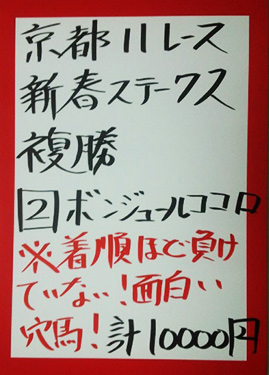 京都11レース
新春ステークス
複勝
2ボンジュールココロ
※着順ほど負け
ていない!面白い
穴馬!計10000円